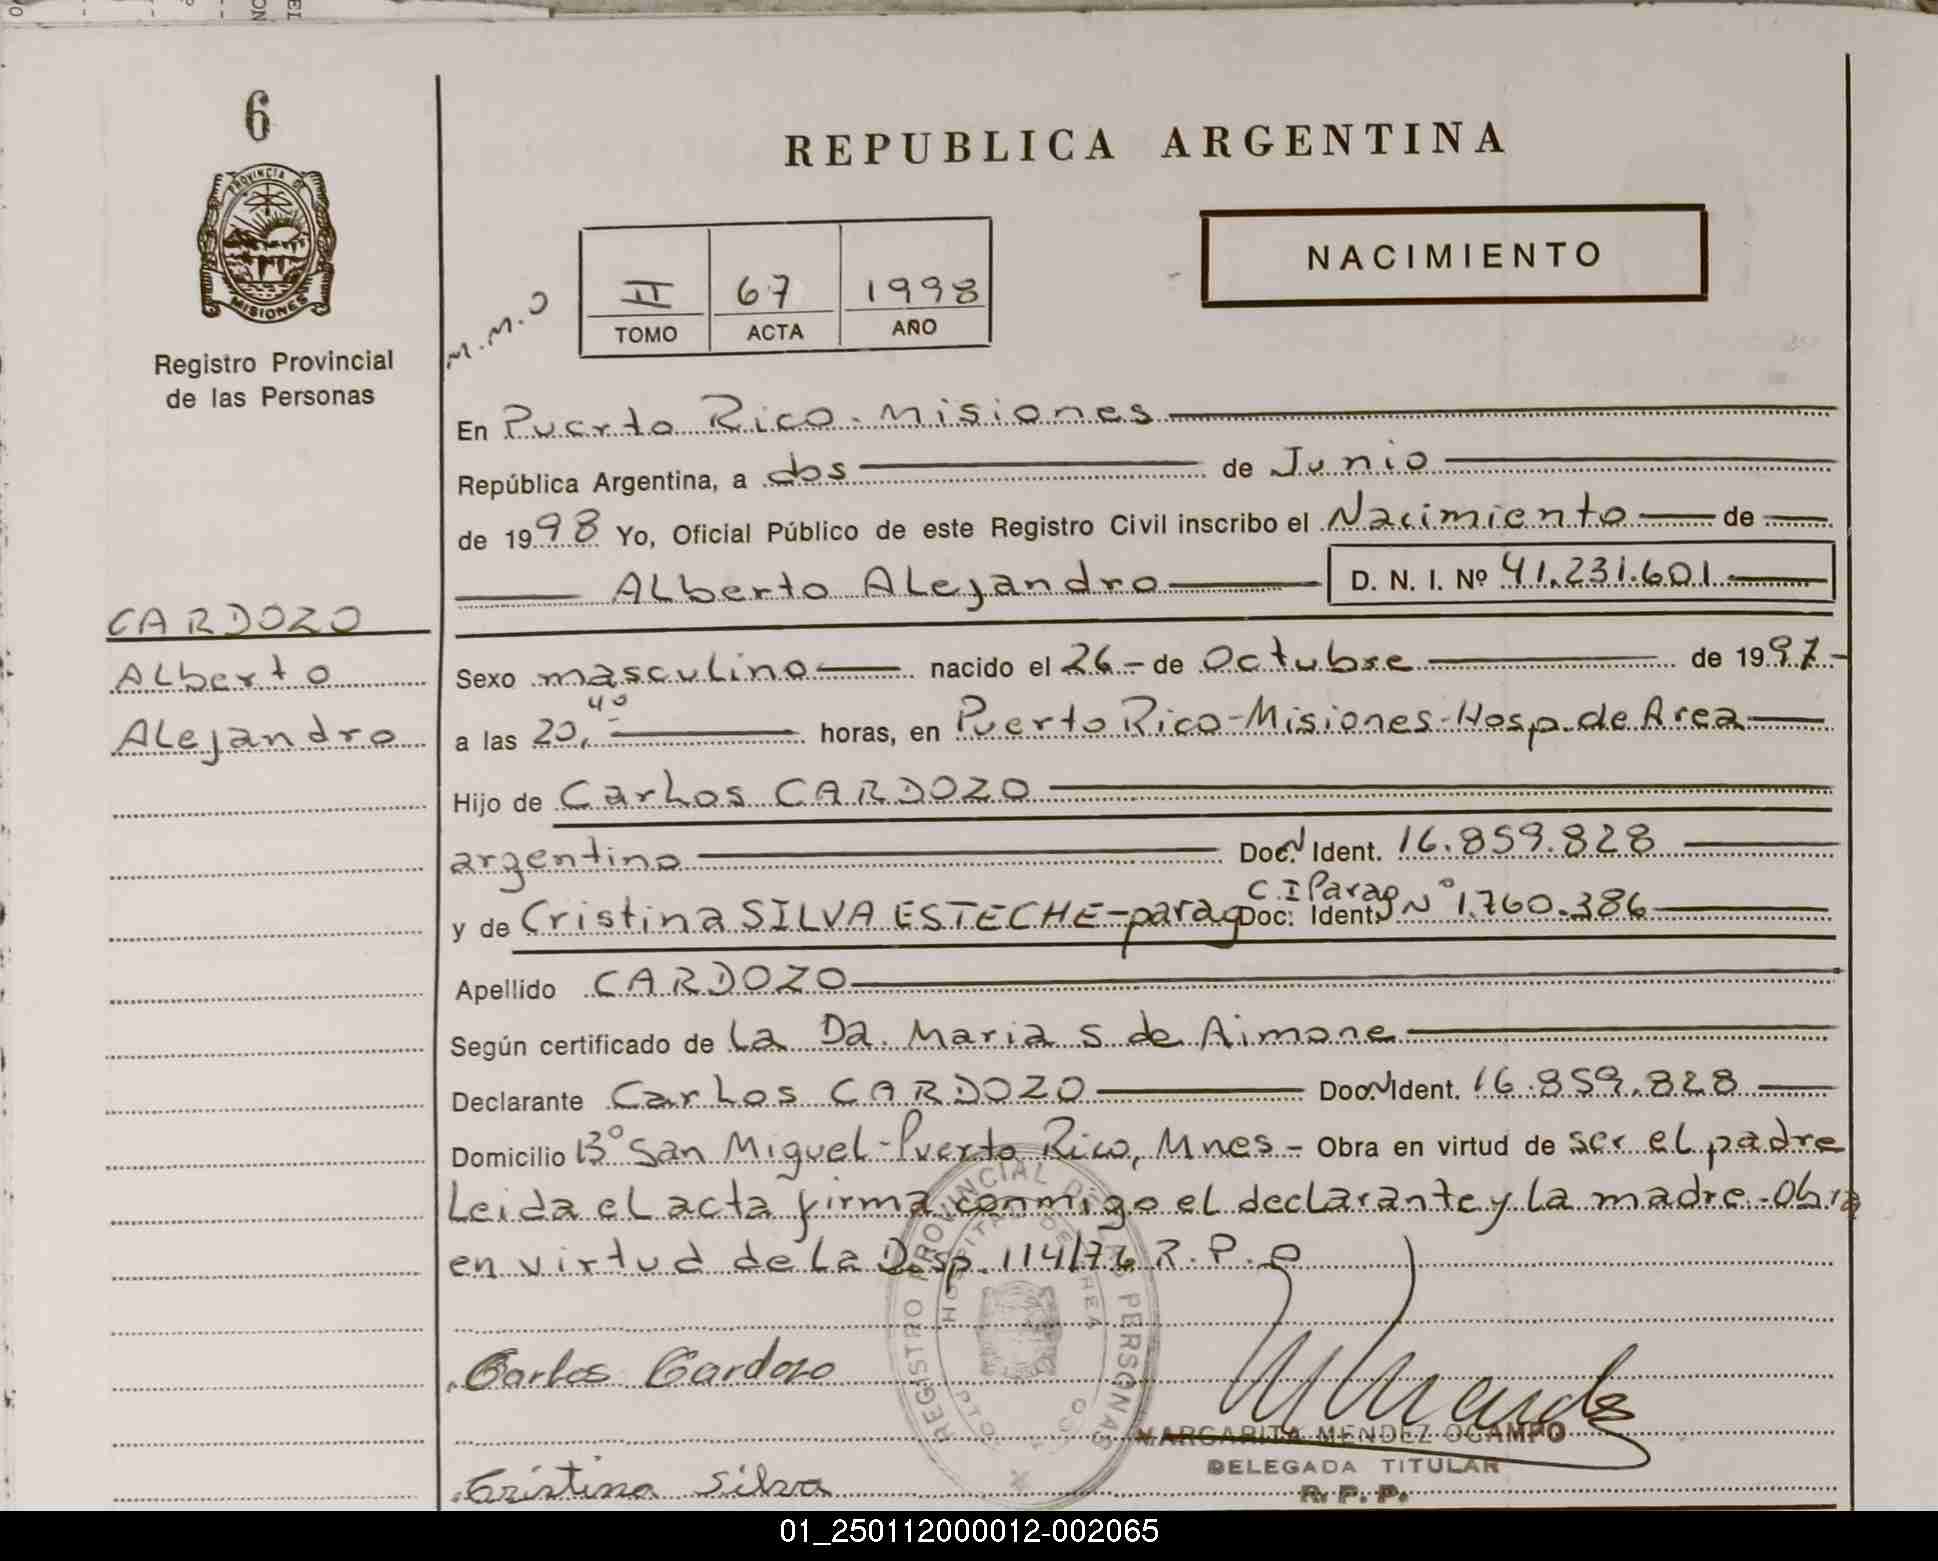 6
PROVINCIA DE
MISIONES
Registro Provincial
de las Personas
REPUBLICA ARGENTINA
NACIMIENTO
M.M.O
II 67 1998
TOMO ACTA AÑO
En Puerto Rico - Misiones
República Argentina, a dos de Junio
de 1998 Yo, Oficial Público de este Registro Civil inscribo el Nacimiento de
Alberto Alejandro D. N. I. Nº 41.231.601
CARDOZO
Alberto
Alejandro
Sexo masculino nacido el 26 - de Octubre de 1997 -
a las 20,40 horas, en Puerto Rico - Misiones - Hosp. de Area
Hijo de Carlos CARDOZO
argentino Doc. N Ident. 16.859.828
y de Cristina SILVA ESTECHE - parag Doc. Ident. C.I Parag Nº 1.760.386
Apellido CARDOZO
Según certificado de La Da. Maria S de Aimone
Declarante Carlos CARDOZO Doc. N Ident. 16.859.828
Domicilio Bº San Miguel - Puerto Rico, Mnes - Obra en virtud de ser el padre
Leida el acta firma conmigo el declarante y la madre - Obra
en virtud de la Disp. 114/76 R.P.P
REGISTRO PROVINCIAL DE LAS PERSONAS
HOSPITAL DE AREA
PTO. RICO
Carlos Cardozo
MARGARITA MENDEZ OCAMPO
DELEGADA TITULAR
R. P. P.
Cristina Silva
01_250112000012-002065